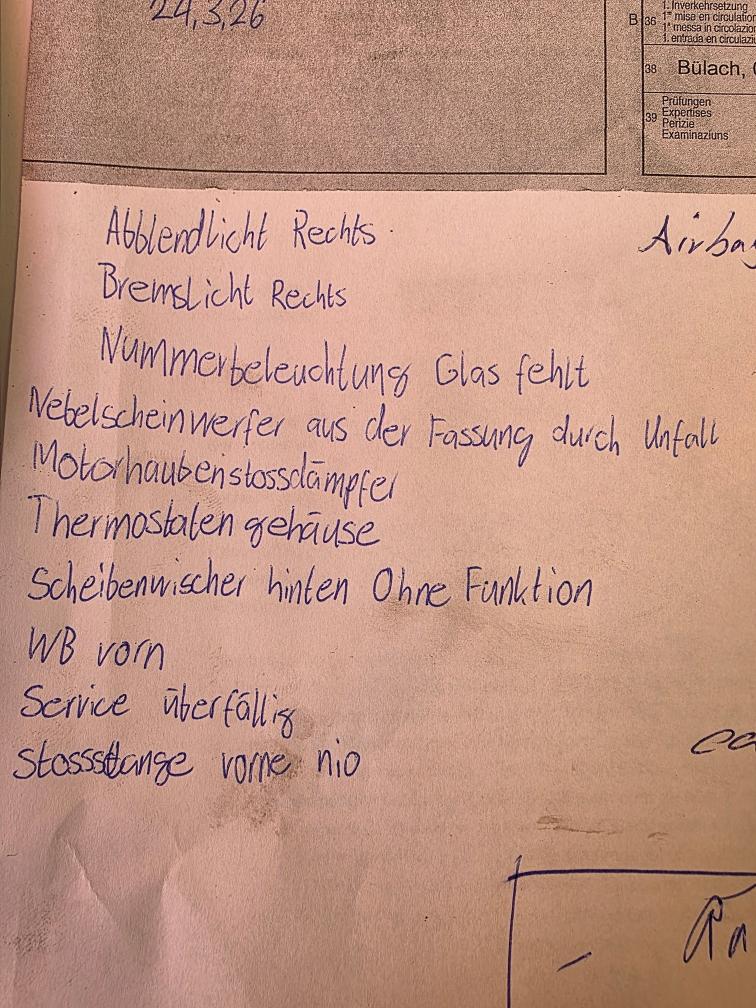 24,3,26
B 36 1. Inverkehrsetzung
1re mise en circulation
1a messa in circolazion
1. entrada en circulazi
38 Bülach,
39 Prüfungen
Expertises
Perizie
Examinaziuns
Abblendlicht Rechts
Airbag
Bremslicht Rechts
Nummerbeleuchtung Glas fehlt
Nebelscheinwerfer aus der Fassung durch Unfall
Motorhaubenstossdämpfer
Thermostatengehäuse
Scheibenwischer hinten Ohne Funktion
WB vorn
Service überfällig
Stossstange vorne nio